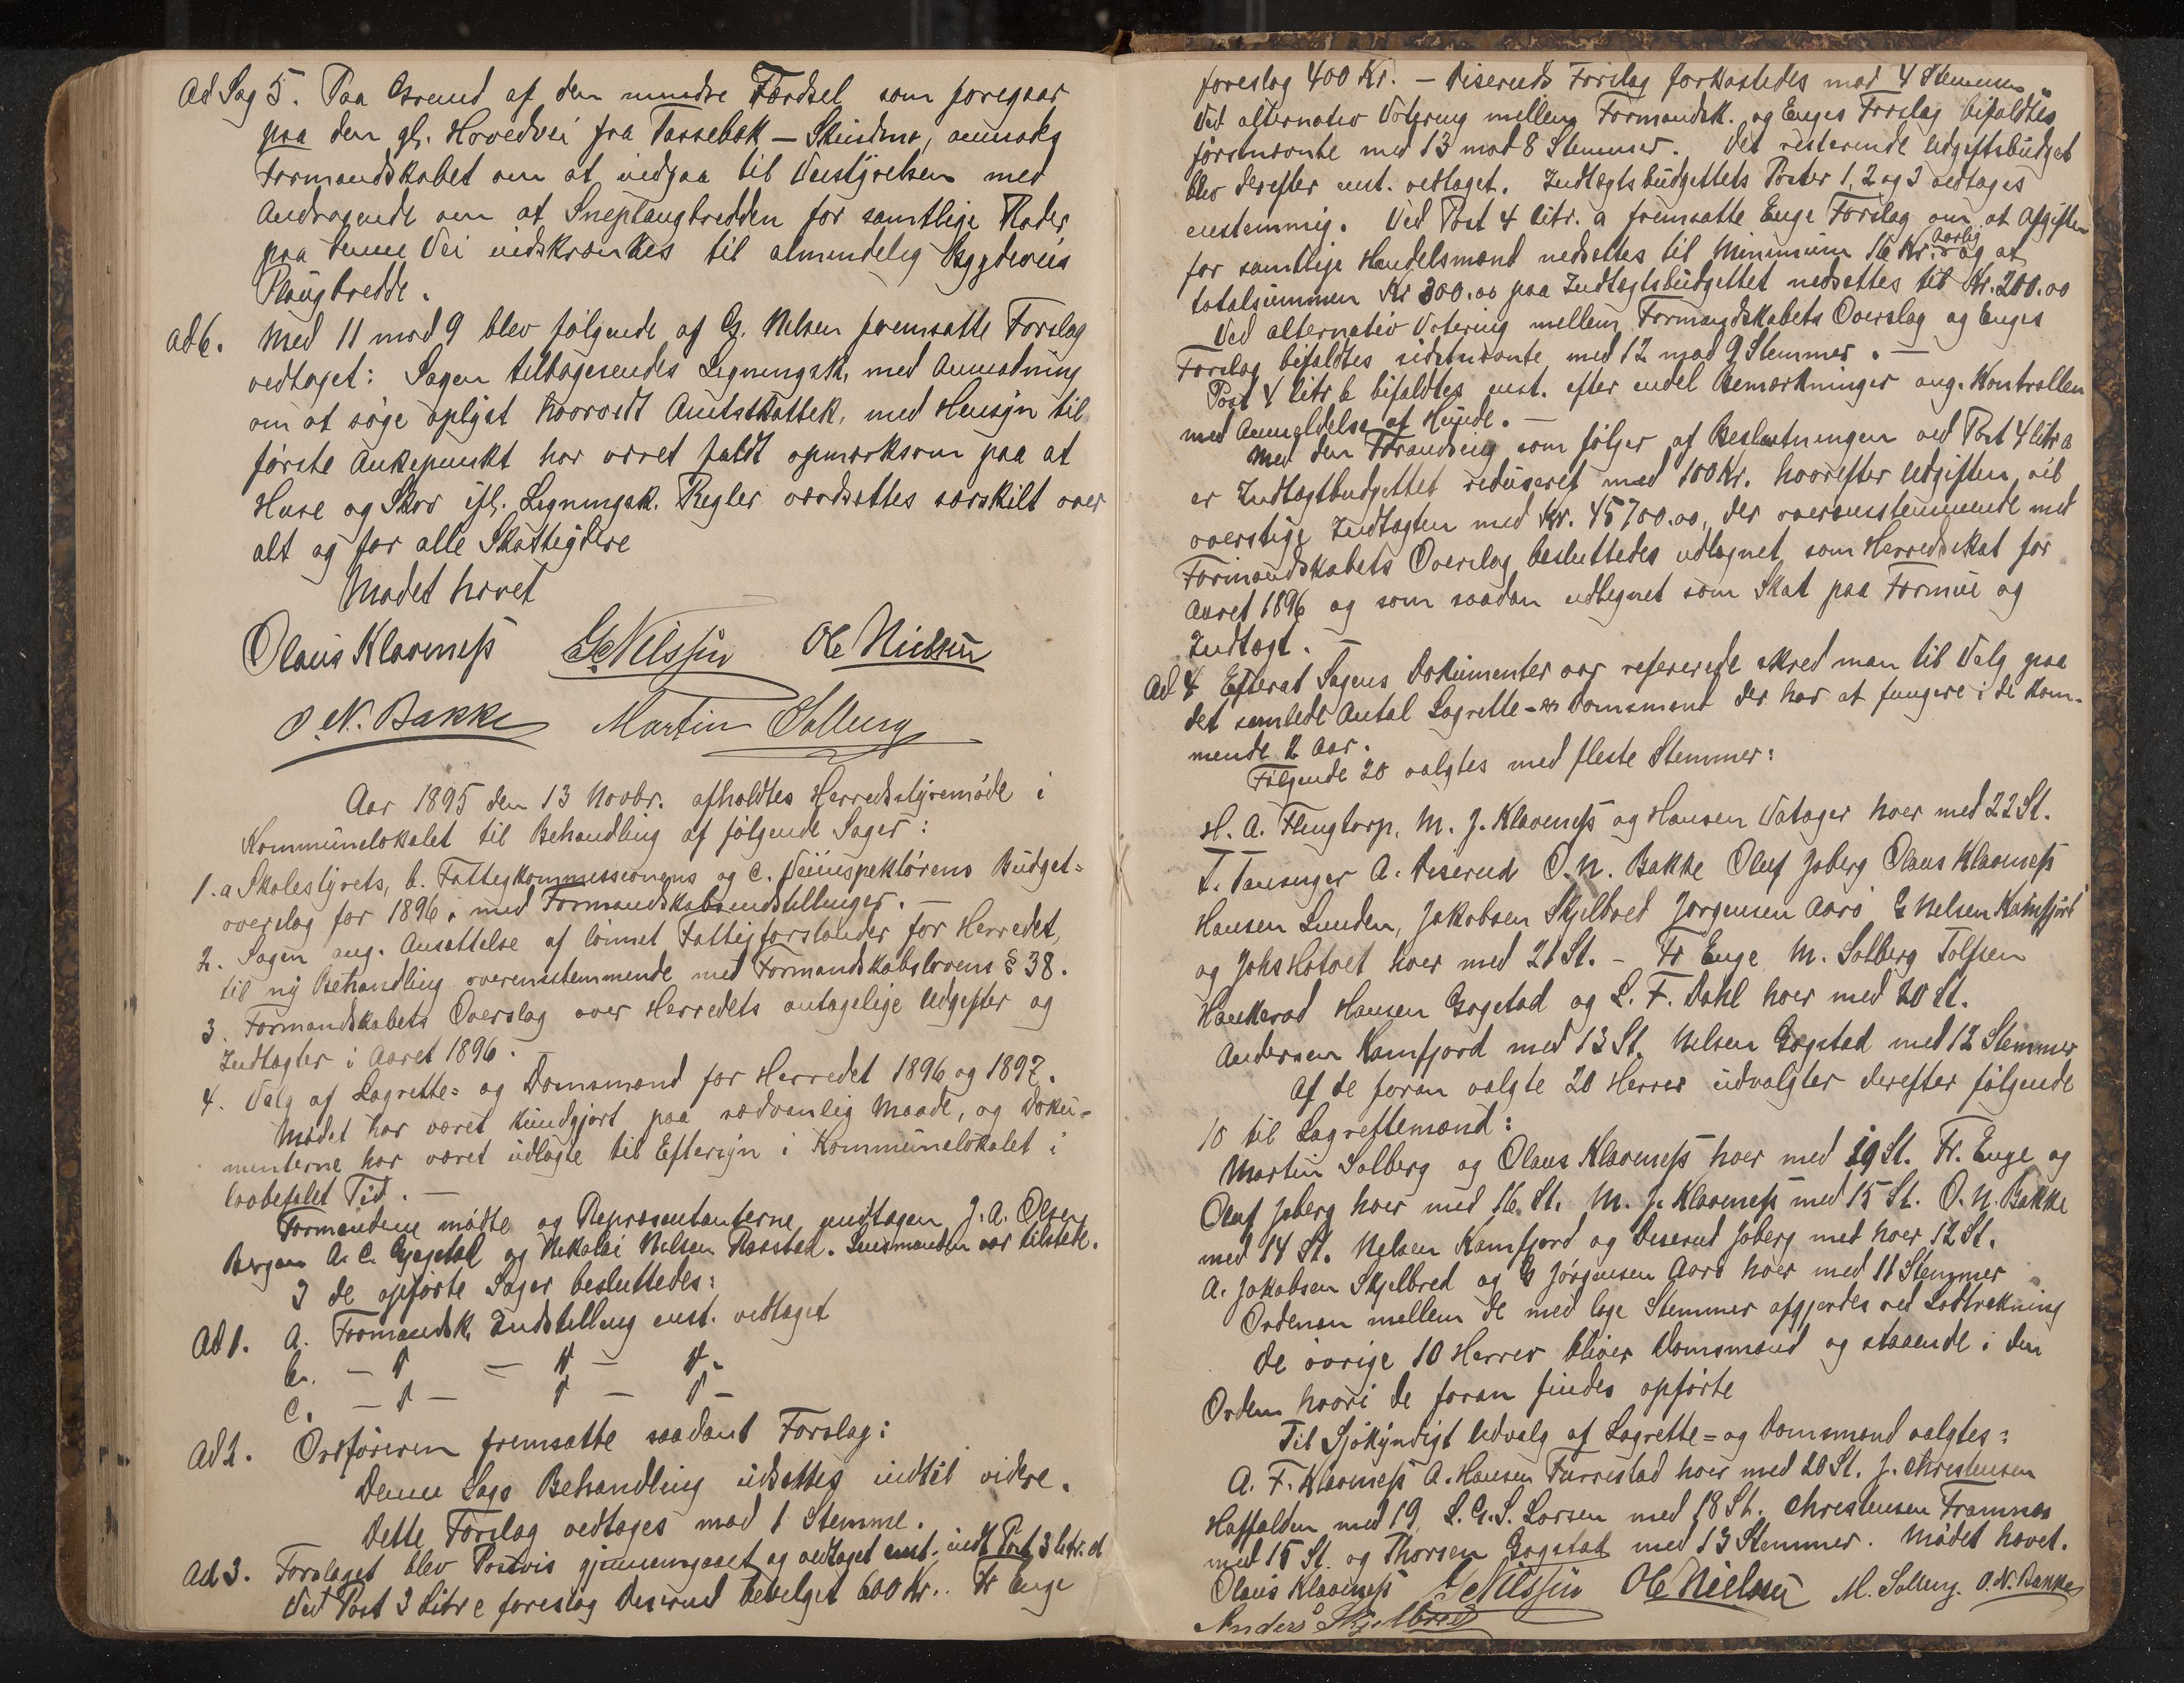 Ad Sag 5. Paa Grund af den mindre Færdsel som foregaar
paa den gl. Hovedvei fra Tassebæk – Skiedmo, anmodes
Formandskabet om at indgaa til Veistyrelsen med
Andragende om at Sneplougbredden for samtlige Roder
paa denne Vei indskrænkes til almindelig Bygdeveis
Plougbredde.
Ad 6. Med 11 mod 9 blev følgende af G. Nilsen fremsatte Forslag
vedtaget: Sagen tilbagesendes Ligningsk. med Anmodning
om at søge oplyst hvorvidt Amtsskattek. med Hensyn til
første Ankepunkt har været fuldt opmærksom paa at
Huse og Skov ifl. Ligningsk. Regler værdsættes særskilt over
alt og for alle Skatteydere
Mødet hævet
Olaus Klaveness G. Nilssen Ole Nielsen
O. N. Bakke Martin Solberg
Aar 1895 den 13 Novbr. afholdtes Herredsstyremøde i
Kommunelokalet til Behandling af følgende Sager:
1. a Skolestyrets, b. Fattigkommissionens og c. Veiinspektørens Budget=
overslag for 1896, med Formandskabsindstillinger. —
2. Sagen ang. Ansættelse af lønnet Fattigforstander for Herredet,
til ny Behandling overensstemmende med Formandskabslovens § 38.
3. Formandskabets Overslag over Herredets antagelige Udgifter og
Indtægter i Aaret 1896. —
4. Valg af Lagrette= og Domsmænd for Herredet 1896 og 1897.
Mødet har været kundgjort paa sædvanlig Maade, og Doku-
menterne har været udlagte til Eftersyn i Kommunelokalet i
lovbefalet Tid. —
Formændene mødte og Repræsentanterne undtagen J. A. Olsen
Bergan A. C. Gogstad og Nikolai Nilsen Raastad. Lensmanden var tilstede.
I de opførte Sager besluttedes:
Ad 1. a. Formandsk. Indstilling enst. vedtaget
b. — " — " — " -
c. — " — " — " -
Ad 2. Ordføreren fremsatte saadant Forslag:
Denne Sags Behandling udsættes indtil videre.
Dette Forslag vedtages mod 1 Stemme.
Ad 3. Forslaget blev Postvis gjennemgaaet og vedtaget enst. indt. Post 3 litr. d
Ved Post 3 Litr e foreslog Diserud bevilget 600 Kr.. Fr Enge
foreslog 400 Kr. – Diseruds Forslag forkastedes mod 4 Stemmer
Ved alternativ Votering mellem Formandsk. og Enges Forslag bifaldtes
førstnævnte med 13 mod 8 Stemmer. Det resterende Udgiftsbudget
blev derefter enst. vedtaget. Indtægtsbudgettets Poster 1, 2 og 3 vedtages
enstemmig. Ved Post 4 litr. a fremsatte Enge Forslag om at Afgiften
for samtlige Handelsmænd nedsættes til Minimum 16 Kr. aarlig og at
totalsummen Kr 300.00 paa Indtægtsbudgettet nedsættes til Kr. 200.00
Ved alternativ Votering mellem Formandskabets Overslag og Enges
Forslag bifaldtes sidstnævnte med 12 mod 9 Stemmer. —
Post 4 litr b bifaldtes enst. efter endel Bemærkninger ang. Kontrollen
med Anmeldelse af Hunde. —
Med den Forandring som følger af Beslutningen ved Post 4 litr a
er Indtægtbudgettet reduseret med 100 Kr. hvorefter Udgiften vil
overstige Indtægten med Kr. 45700.00, der overensstemmende med
Formandskabets Overslag besluttedes udlignet som Herredsskat for
Aaret 1896 og som saadan udlignet som Skat paa Formue og
Indtægt. —
Ad 4 Efterat Sagens Dokumenter var refererede skred man til Valg paa
det samlede Antal Lagrette- og Domsmænd der har at fungere i de kom-
mende 2 Aar.
Følgende 20 valgtes med fleste Stemmer:
H. A. Flengtorp, M. J. Klaveness og Hansen Vatager hver med 22 St.
T. Tansnger A. Diserud O. N. Bakke Oluf Joberg Olaus Klavness
Hansen Lunden, Jakobsen Skjelbred Jørgensen Aarø G Nilsen Kamfjord
og Johs Hotvet hver med 21 St. – Fr Enge M. Solberg Tolfsen
Haukerød Hansen Gogstad og L. F. Dahl hver med 20 St.
Andersen Kamfjord med 13 St. Nilsen Gogstad med 12 Stemmer
Af de foran valgte 20 Herrer udvalgtes derefter følgende
10 til Lagrettemænd:
Martin Solberg og Olaus Klavness hver med 19 St. Fr. Enge og
Oluf Joberg hver med 16. St. M. J. Klavness med 15 St. O. N. Bakke
med 14 St. Nilsen Kamfjord og Diserud Joberg med hver 12 St.
A. Jakobsen Skjelbred og G Jørgensen Aarø hver med 11 Stemmer
Ordenen mellem de med lige Stemmer afgjordes ved Lodtrekning
De øvrige 10 Herrer bliver Domsmænd og staaende i den
Orden hvori de foran findes opførte
Til Sjøkyndigt Udvalg af Lagrette= og Domsmænd valgtes:
A. F. Klavness A. Hansen Furrestad hver med 20 St. J. Christensen
Haffalden med 19, L. G. S. Larsen med 18 St. Christensen Framnæs
med 15 St. og Thorsen Gogstad med 13 Stemmer. Mødet hævet.
Olaus Klavness G. Nilssen Ole Nielsen M. Solberg. O. N. Bakke
Anders Skjelbred